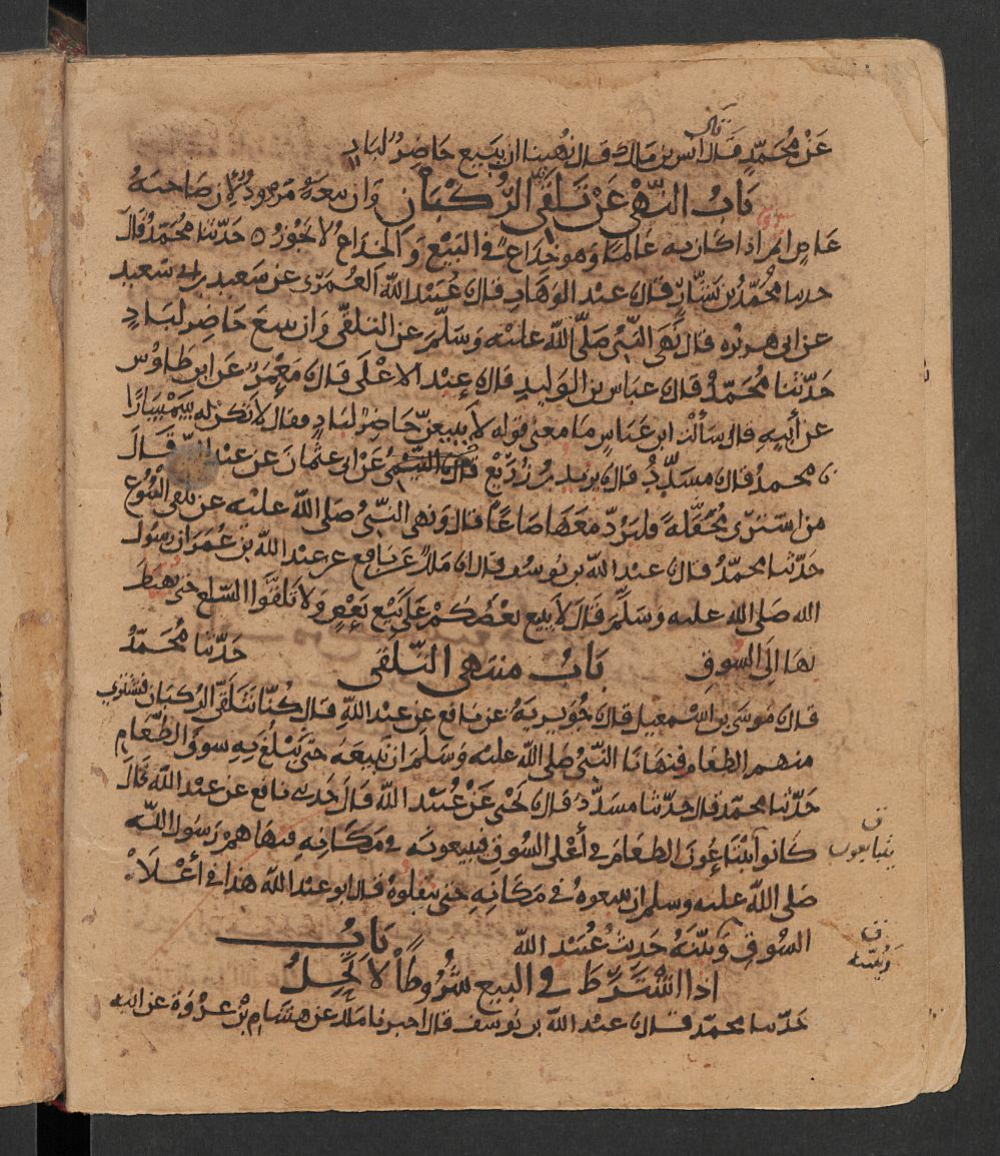 قال
عن محمد قال انس بن مالك قال نهينا ان يبيع حاضر لباد
باب النهي عن تلقي الركبان وان بيعه مردود لان صاحبه
عاص اثم اذا كان به عالما وهو خداع في البيع والخداع لا يجوز ه حدثنا محمد قال
حدثنا محمد بن بشار قال عبد الوهاب قال عبيد الله العمري عن سعيد بن ابي سعيد
عن ابي هريرة قال نهى النبي صلى الله عليه وسلم عن التلقي وان يبيع حاضر لباد
حدثنا محمد قال عباس بن الوليد قال عبد الاعلى قال معمر عن ابن طاوس
عن أبيه قال سألت ابن عباس ما معنى قوله لا يبيعن حاضر لباد فقال لا تكن له سمسارا
محمد قال مسدد قال يزيد بن زريع قال التيمي عن ابي عثمان عن عبد الله قال
من اشترى محفلة فليرد معها صاعا قال ونهى النبي صلى الله عليه عن تلقي البيوع
حدثنا محمد قال عبد الله بن يوسف قال ملك عن نافع عن عبد الله بن عمر ان رسول
الله صلى الله عليه وسلم قال لا يبيع بعضكم على بيع بعض ولا تلقوا السلع حتى يهبط
بها الى السوق باب منتهى التلقي حدثنا محمد
قال موسى بن اسمعيل قال جويرية عن نافع عن عبد الله قال كنا نتلقى الركبان فنشتري
منهم الطعام فنهانا النبي صلى الله عليه وسلم ان نبيعه حتى يبلغ به سوق الطعام
حدثنا محمد قال حدثنا مسدد قال يحيى عن عبيد الله قال حدثني نافع عن عبد الله قال
كانوا يبتاعون الطعام في أعلى السوق فيبيعونه في مكانه فنهاهم رسول الله
صلى الله عليه وسلم ان يبيعوه في مكانه حتى ينقلوه قال ابو عبد الله هذا في أعلا
السوق ويبينه حديث عبيد الله باب
اذا اشترط في البيع شروطا لا تحل
حدثنا محمد قال عبد الله بن يوسف قال اخبرنا ملك عن هشام بن عروة عن ابيه
ق
يتبايعون
ق
وبينه